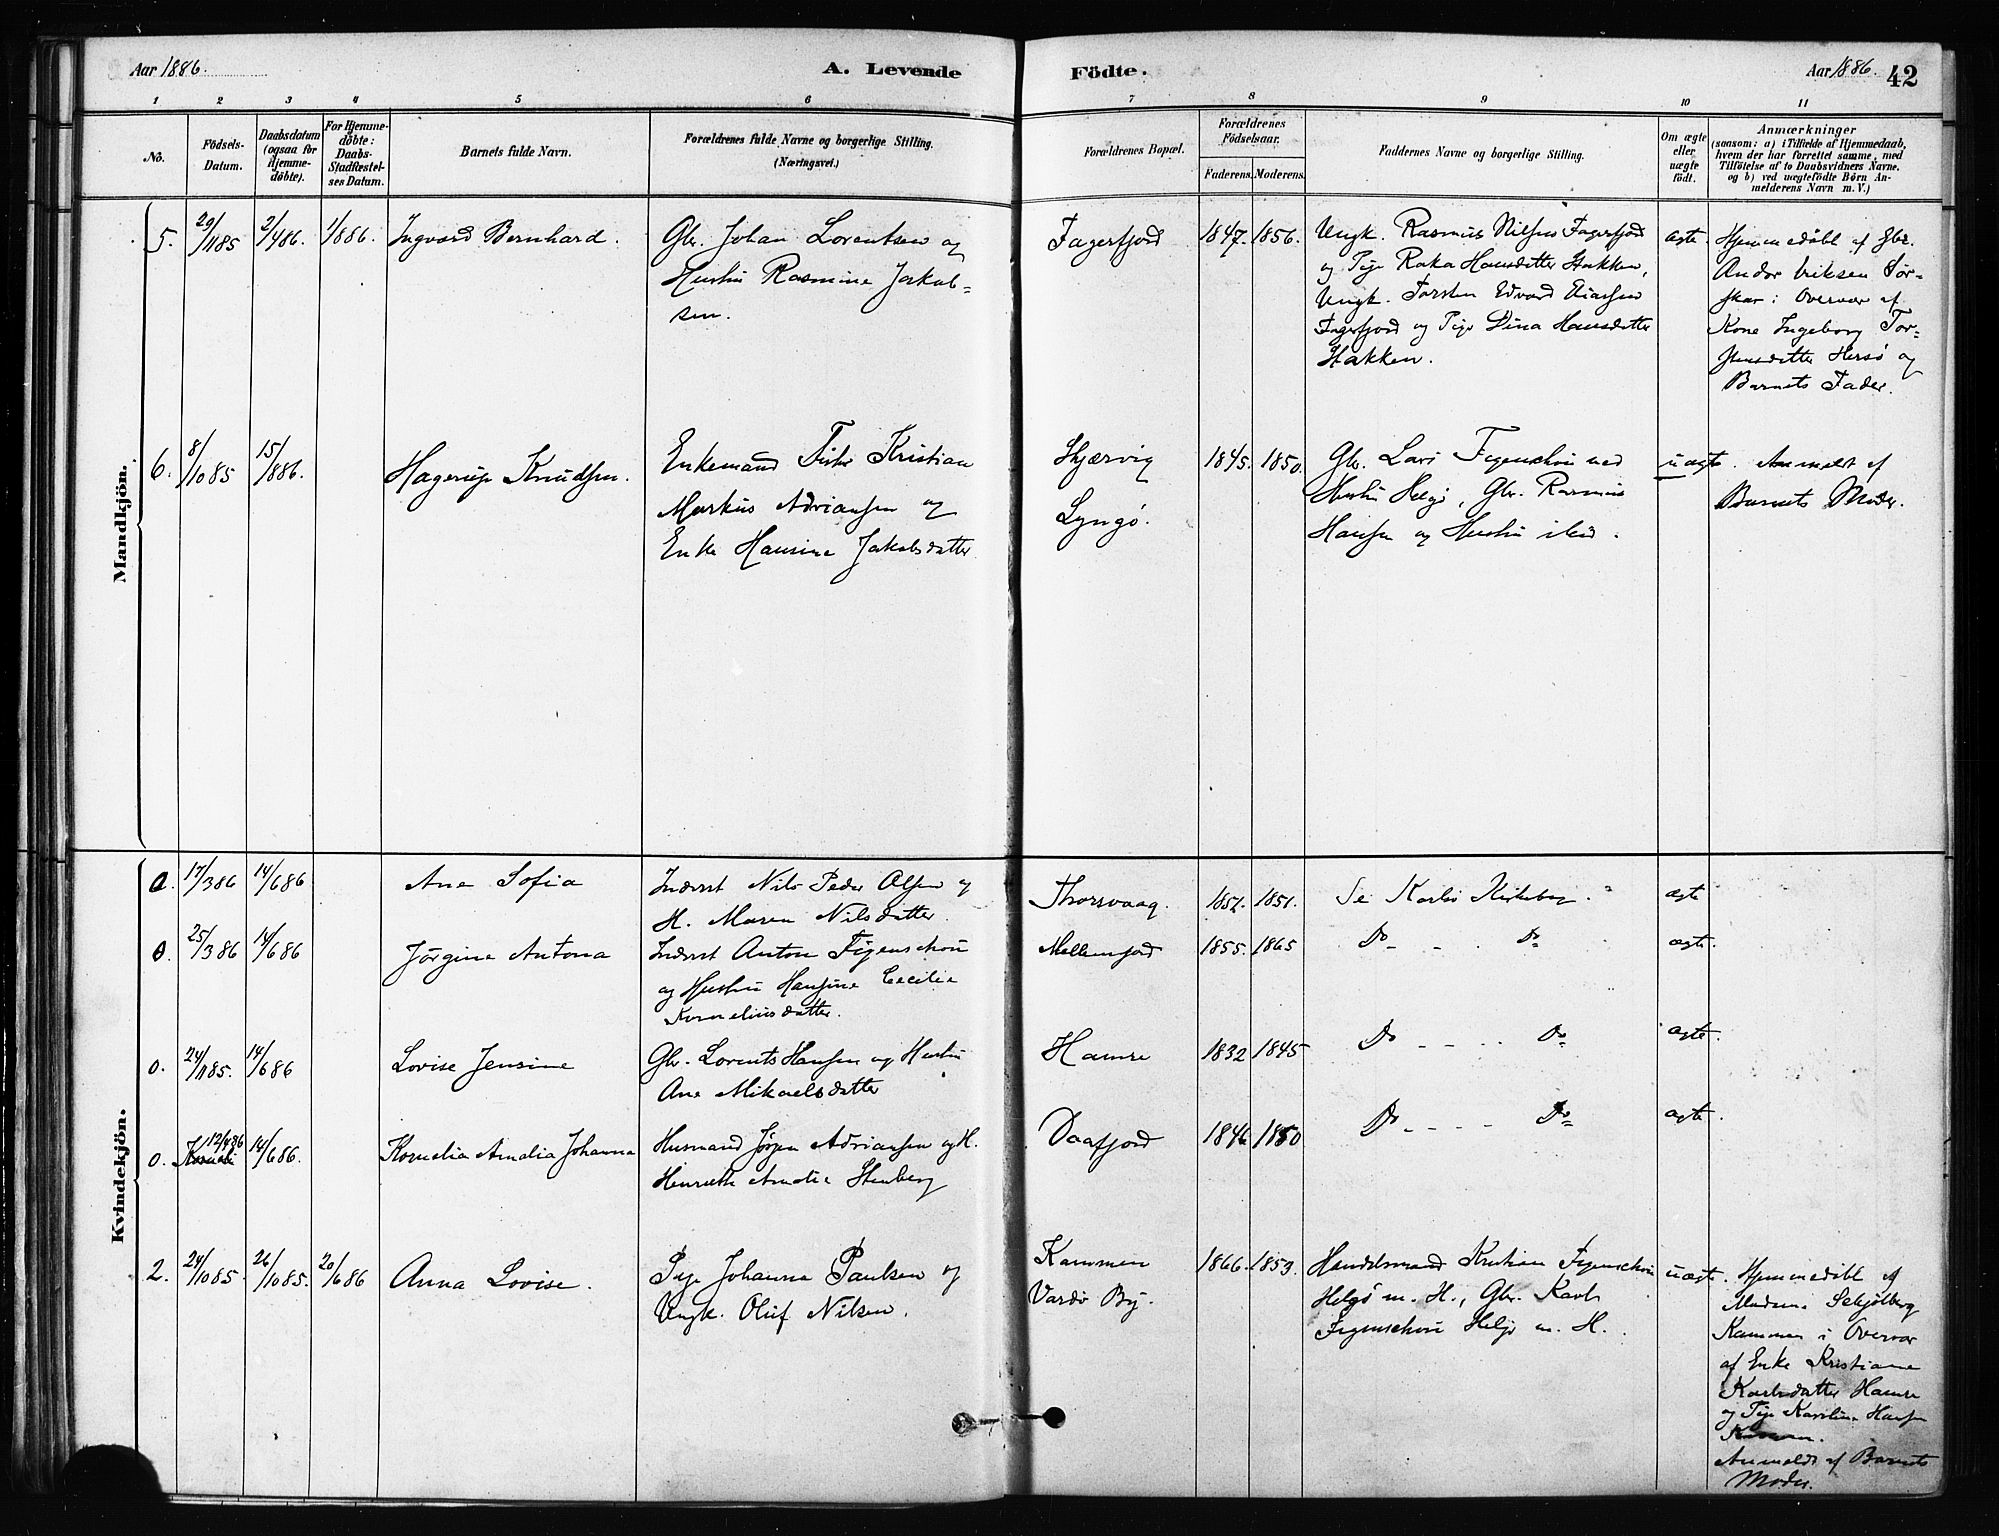 Aar 1886.
A. Levende
Födte.
Aar 1886.
42
1 2 3 4 5 6 7 8 9 10 11
No.
Födsels-
Datum.
Daabsdatum
(ogsaa for
Hjemme-
döbte).
For Hjemme-
döbte:
Daabs-
Stadfæstel-
ses Datum.
Barnets fulde Navn.
Forældrenes fulde Navne og borgerlige Stilling.
(Næringsvei.)
Forældrenes Bopæl.
Forældrenes
Födselsaar.
Faderens. Moderens.
Faddernes Navne og borgerlige Stilling.
Om ægte
eller
uægte
födt.
Anmærkninger
(saasom: a) i Tilfælde af Hjemmedaab,
hvem der har forrettet samme, med
Tilföielse af to Daabsvidners Navne,
og b) ved uægtefödte Börn An-
melderens Navn m. V.)
Mandkjön.
5. 29/1185 2/486. 1/886. Ingvard Bernhard.
Gbr. Johan Lorentsen og
Hustru Rasmine Jakob-
sen.
Fagerfjord 1847. 1856.
Ungk. Rasmus Nilsen Fagerfjord
og Pige Raka Hansdatter Hakken,
Ungk. Torsten Edvard Eiassen
Fagerfjord og Pige Dina Hansdatter
Hakken.
ægte.
Hjemmedøbt af Gbr.
Andor Eriksen Sør-
skar i Overvær af
Kone Ingeborg Tor-
stensdatter Hersø og
Barnets Fader.
6. 8/1085 15/886. Hagerup Knudsen.
Enkemand Fisker Kristian
Markus Adriansen og
Enke Hansine Jakobsdatter
Skjærvig
Lyngø.
1845. 1850.
Gbr. Lars Figenschou med
Hustru Helgø, Gbr. Rasmus
Hansen og Hustru ibid.
uægte.
Anmeldt af
Barnets Moder.
Kvindekjön.
0. 17/386 14/686 Ane Sofia
Inderst Nils Peder Olsen og
H. Maren Nilsdatter.
Thorsvaag. 1851. 1851. Se Karlsø Kirkebog. ægte
0. 25/386 14/686 Jørgine Antona
Inderst Anton Figenschou
og Hustru Hansine Cecilie
Korneliusdatter.
Mellemfjord 1855. 1865 Do - - Do ægte.
0. 24/1185. 14/686 Lovise Jensine
Gbr. Lorents Hansen og Hustru
Ane Mikaelsdatter
Hamre 1832 1845 Do - - - Do ægte.
0. 12/486 14/686. Kornelia Amalia Johanna
Husmand Jørgen Adriansen og H.
Henriette Amalie Stenberg
Daafjord 1846 1850 Do - - - Do ægte.
2. 24/1085. 26/1085. 20/686 Anna Lovise.
Pige Johanna Paulsen og
Ungk. Oluf Nilsen.
Kammen
Vardø By.
1866. 1853.
Handelsmand Kristian Figenschou
Helgø m. H., Gbr. Karl
Figenschou Helgø m. H.
uægte.
Hjemmedøbt af
Schjølberg
Kammen i Overvær
af Enke Kristiane
Karlsdatter Hamre
og Pige Karoline Hansen
Kammen.
Anmeldt af Barnets
Moder.